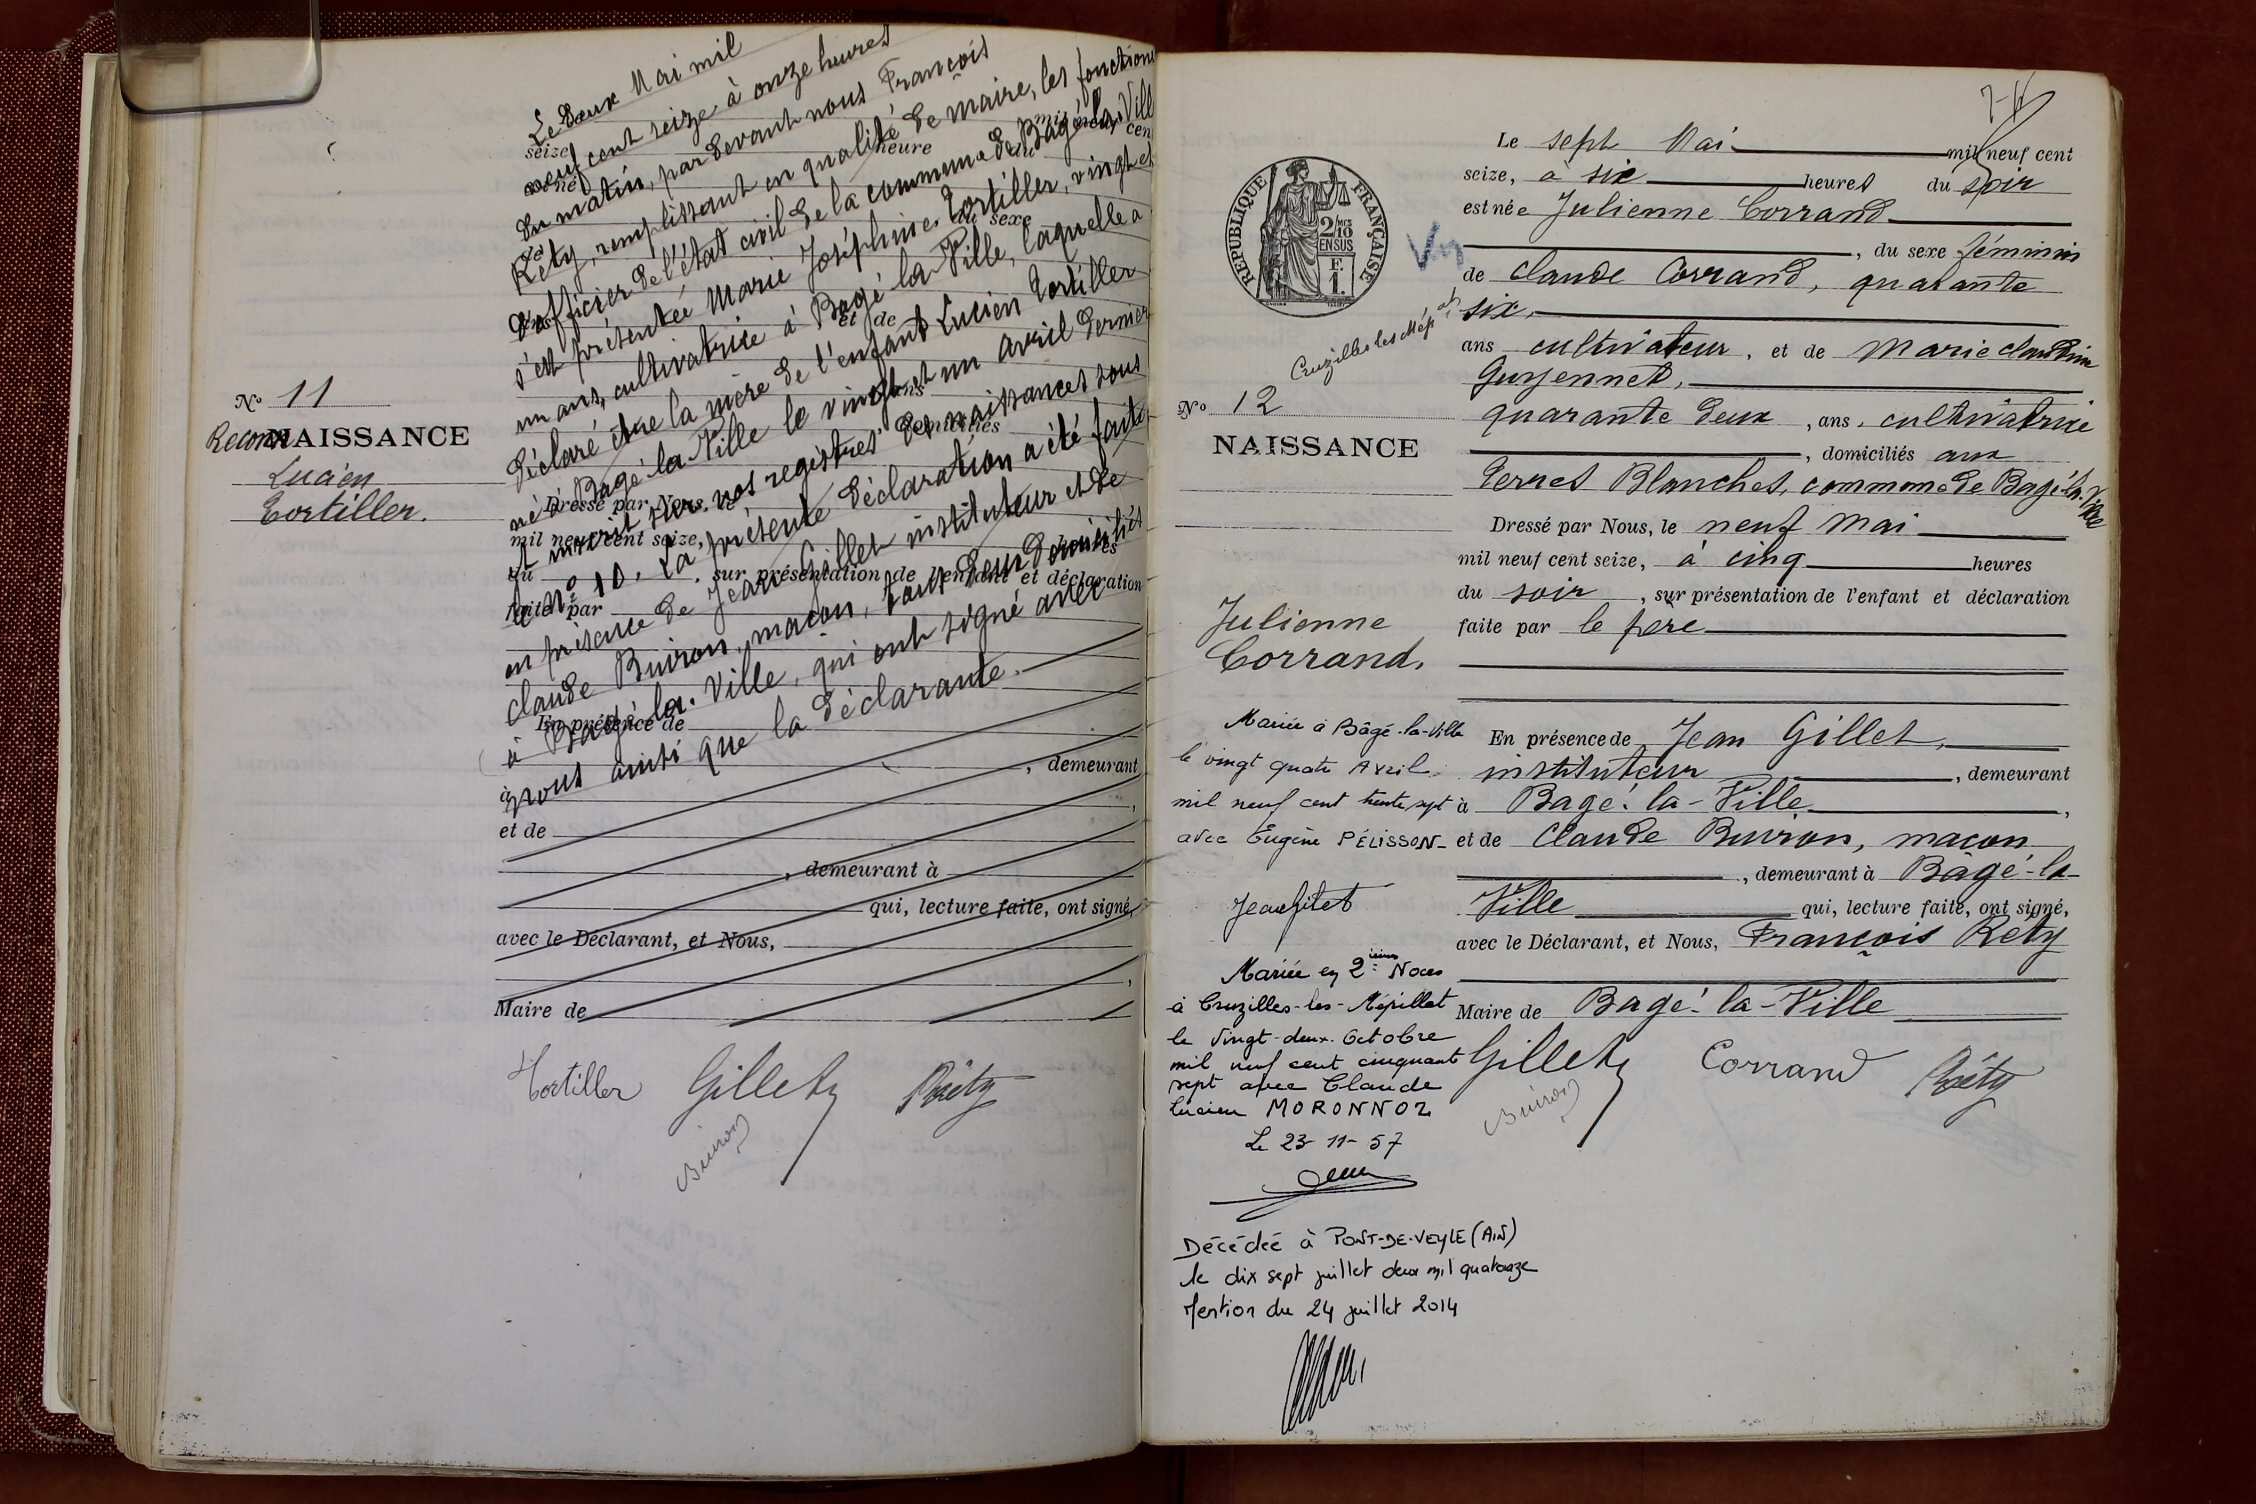 Le deux Mai mil
neuf cent seize à onze heures
du matin, par devant nous François
Réty, remplissant en qualité de maire, les fonctions
d'officier de l'état civil de la commune de Bagé-la-Ville
s'est présentée Marie Joséphine Tortiller, vingt et
un ans, cultivatrice à Bagé la Ville, laquelle a
déclaré être la mère de l'enfant Lucien Tortiller
né à Bagé la Ville le vingt et un avril dernier
et inscrit sur nos registres des naissances sous
le N° 10. La présente déclaration a été faite
en présence de Jean Gillet instituteur et de
Claude Buiron, maçon, tous deux domiciliés
à Bagé-la-Ville, qui ont signé avec
nous ainsi que la déclarante.
seize
heure
mil neuf cen
du sexe
et de
ans
domiciliés
Dressé par Nous, le
mil neuf cent seize,
du , sur présentation de l'enfant et déclaration
faite par
En présence de
, demeurant
à ,
et de
, demeurant à
qui, lecture faite, ont signé
avec le Déclarant, et Nous,
Maire de
N° 11
Reconn
NAISSANCE
Lucien
Tortiller.
Tortiller Gillet Réty
Buiron
7-
RÉPUBLIQUE FRANÇAISE
2/10
EN SUS
F.
1.
Cruzilles les Mép
N° 12
NAISSANCE
Julienne
Corrand,
Le sept Mai mil neuf cent
seize, à six heures du soir
est née Julienne Corrand
, du sexe féminin
de Claude Corrand, quarante
six,
ans cultivateur, et de Marie Claudine
Guyennet,
quarante deux, ans, cultivatrice
, domiciliés aux
Terres Blanches, commune de Bagé-la-Ville
Dressé par Nous, le neuf Mai
mil neuf cent seize, à cinq heures
du soir, sur présentation de l'enfant et déclaration
faite par le père
En présence de Jean Gillet,
instituteur, demeurant
à Bagé-la-Ville,
et de Claude Buiron, maçon
, demeurant à Bâgé-la-
Ville qui, lecture faite, ont signé,
avec le Déclarant, et Nous, François Réty
Maire de Bagé-la-Ville
Gillet Corrand Réty
Buiron
Mariée à Bâgé-la-Ville
le vingt quatre Avril
mil neuf cent trente sept
avec Eugène PÉLISSON_
Jean Gilet
Mariée en 2ièmes Noces
à Cruzilles-les-Mépillat
le vingt-deux Octobre
mil neuf cent cinquante
sept avec Claude
Lucien MORONNOZ
Le 23-11-57
Décédée à PONT-DE-VEYLE (AIN)
le dix sept juillet deux mil quatorze
Mention du 24 juillet 2014